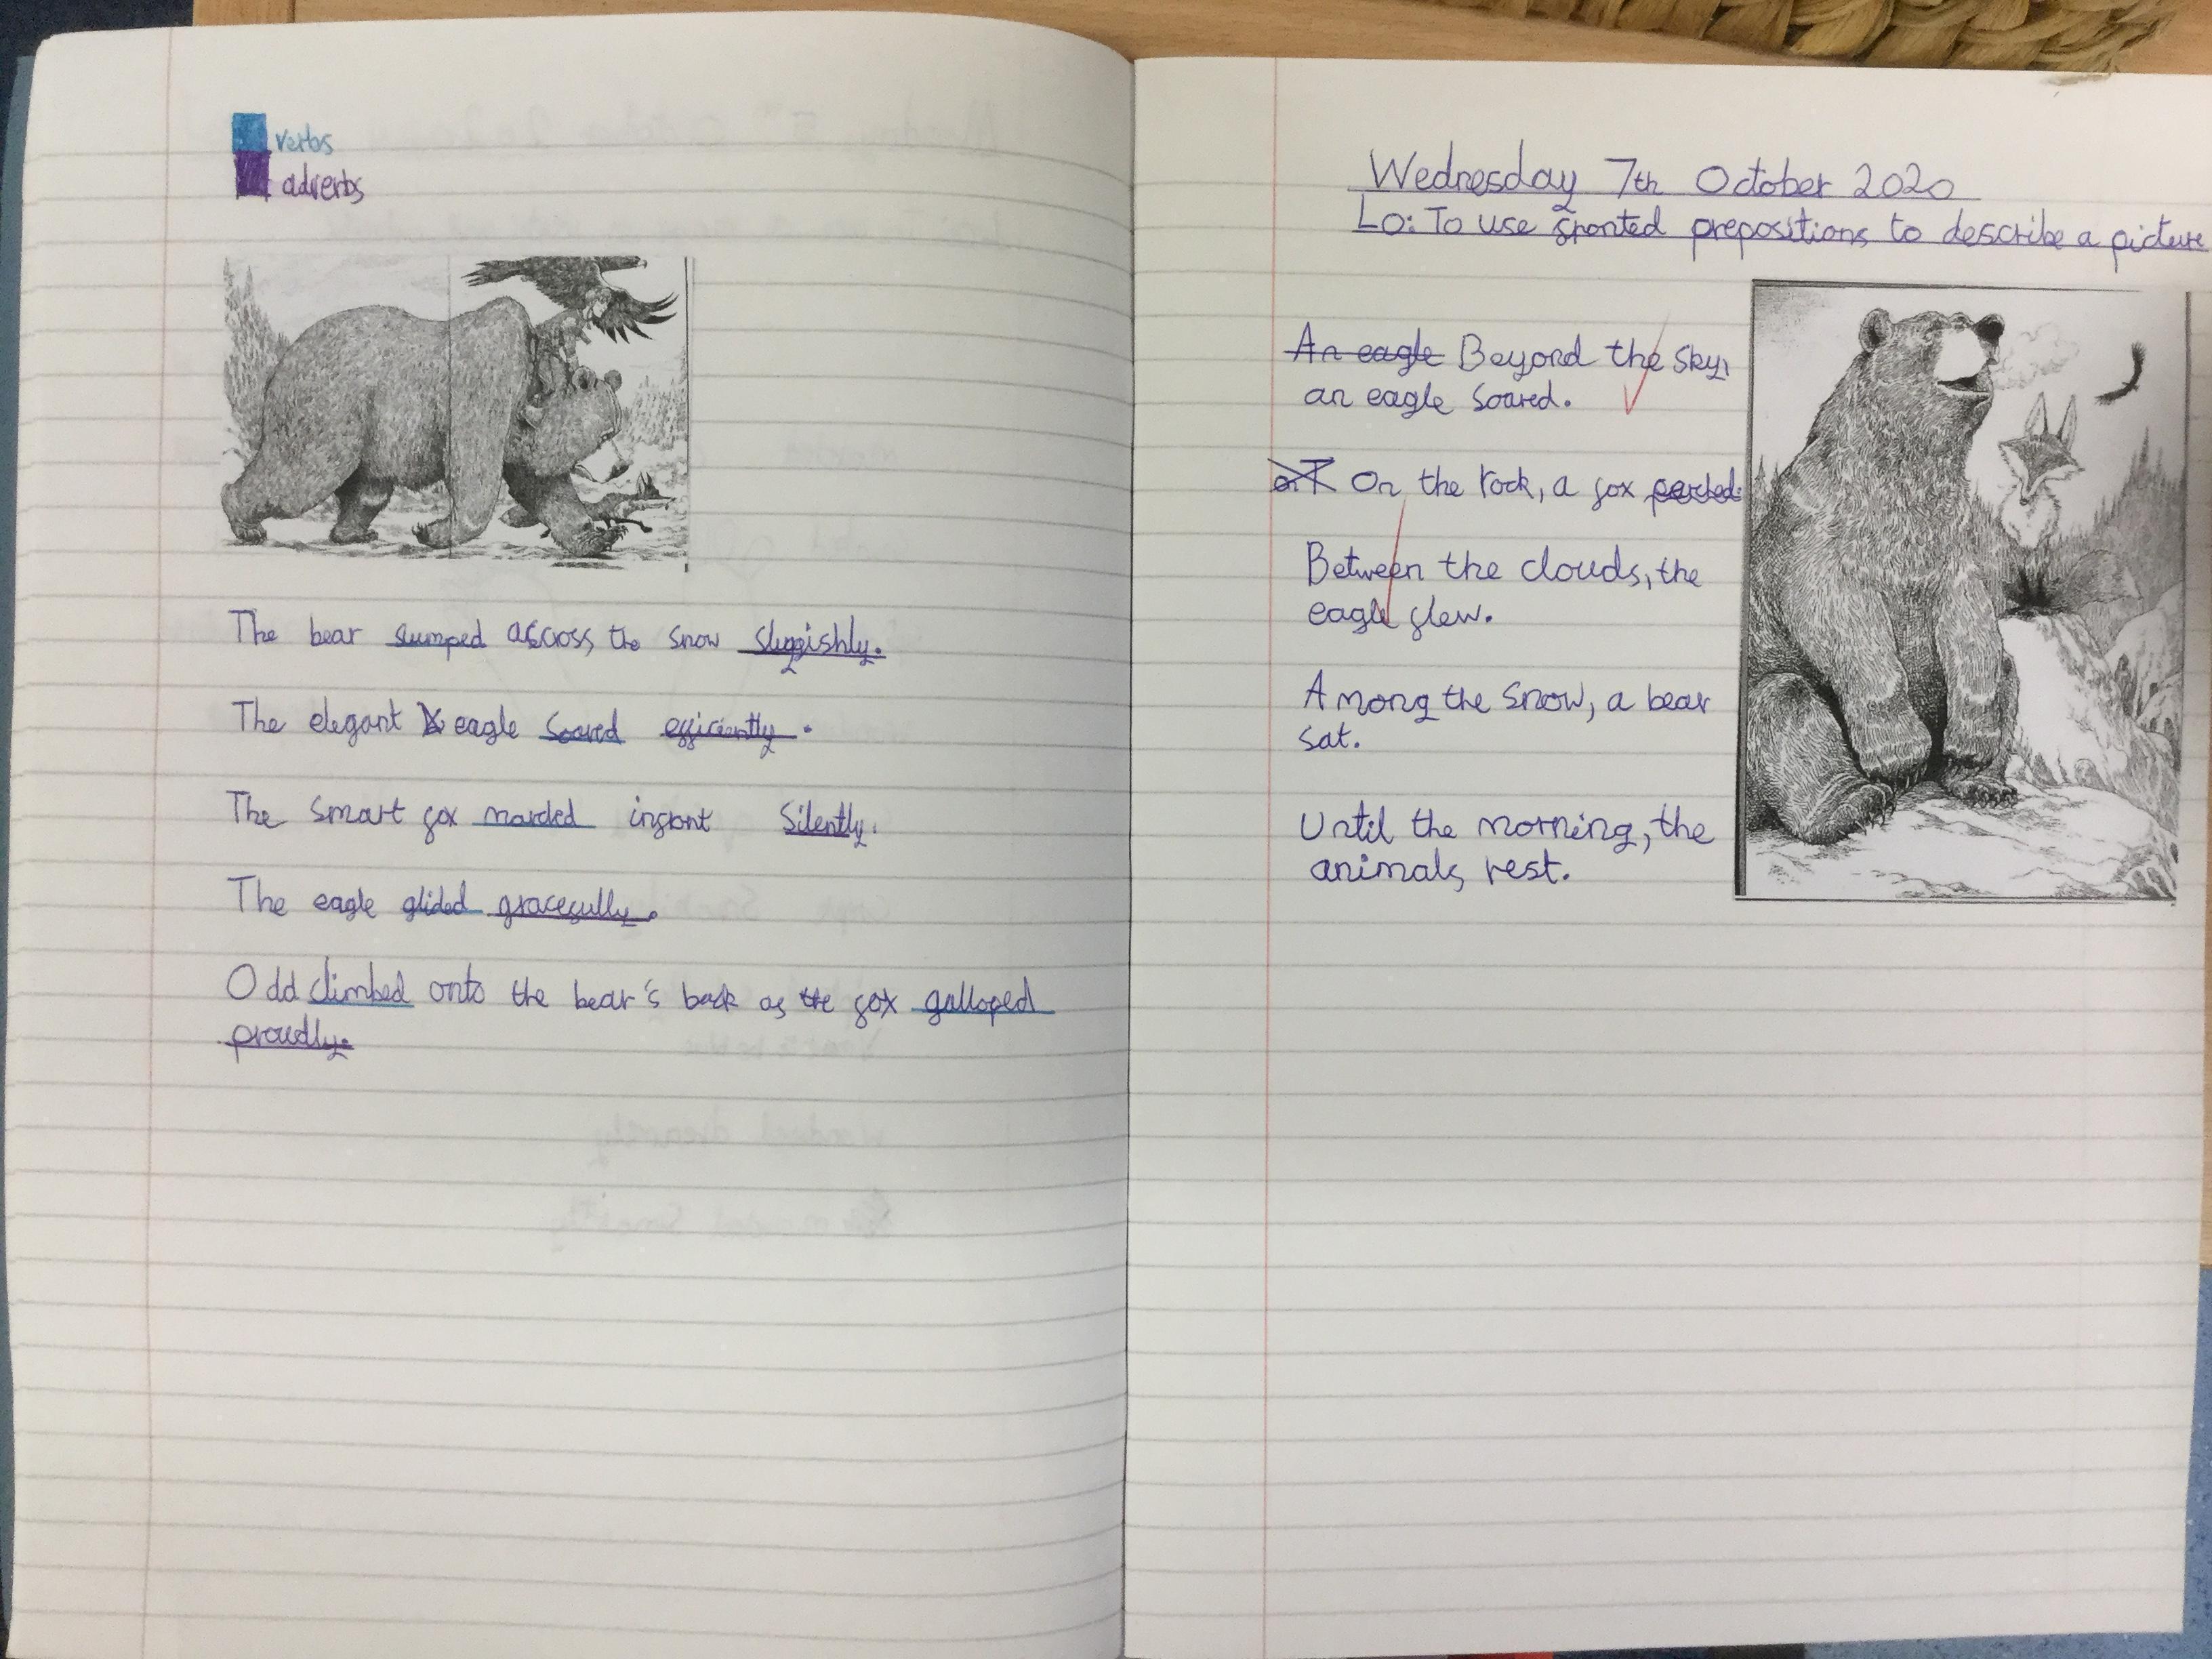 verbs
adverbs
The bear slumped across the snow sluggishly.
The elegant eagle soared efficiently.
The smart fox marched infront silently.
The eagle glided gracefully.
Odd climbed onto the bear's back as the fox galloped
proudly.
Wednesday 7th October 2020
LO: To use fronted prepositions to describe a picture
An eagle Beyond the sky,
an eagle soared.
On the rock, a fox perched.
Between the clouds, the
eagle flew.
Among the snow, a bear
sat.
Until the morning, the
animals rest.